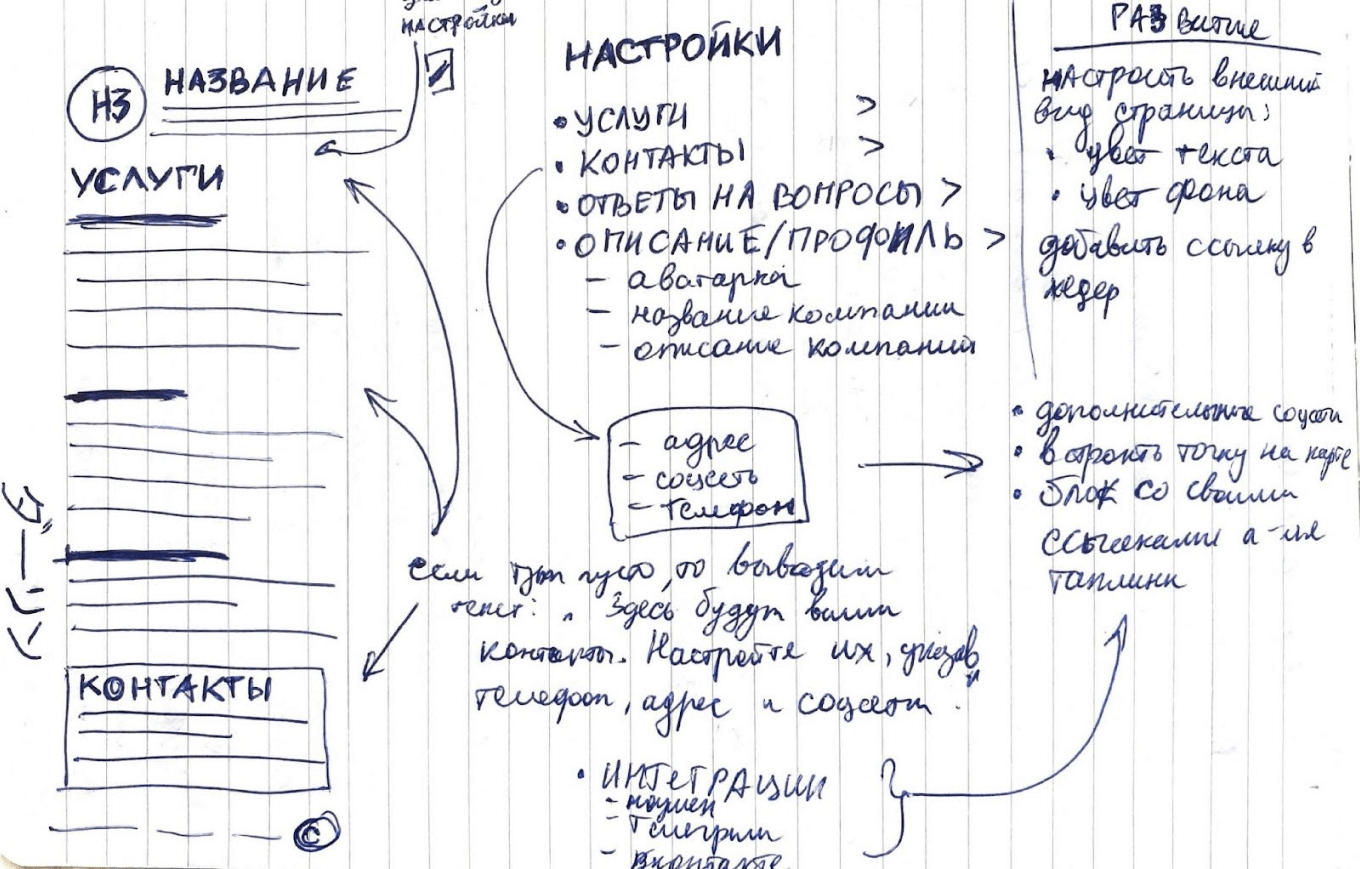 настройки
НЗ
НАЗВАНИЕ
УСЛУГИ
КОНТАКТЫ
©
НАСТРОЙКИ
• УСЛУГИ >
• КОНТАКТЫ >
• ОТВЕТЫ НА ВОПРОСЫ >
• ОПИСАНИЕ/ПРОФИЛЬ >
– аватарка
– название компании
– описание компании
– адрес
– соцсеть
– телефон
если тут пусто, то выводим
текст: „Здесь будут ваши
контакты. Настройте их, указав
телефон, адрес и соцсети.
• ИНТЕГРАЦИИ
– ноушен
– Телеграм
– Вконтакте
РАЗвитие
настроить внешний
вид страницы:
• цвет текста
• цвет фона
добавить ссылку в
хедер
• дополнительные соцсети
• встроить точку на карте
• блок со своими
ссылками а-ля
таплинк